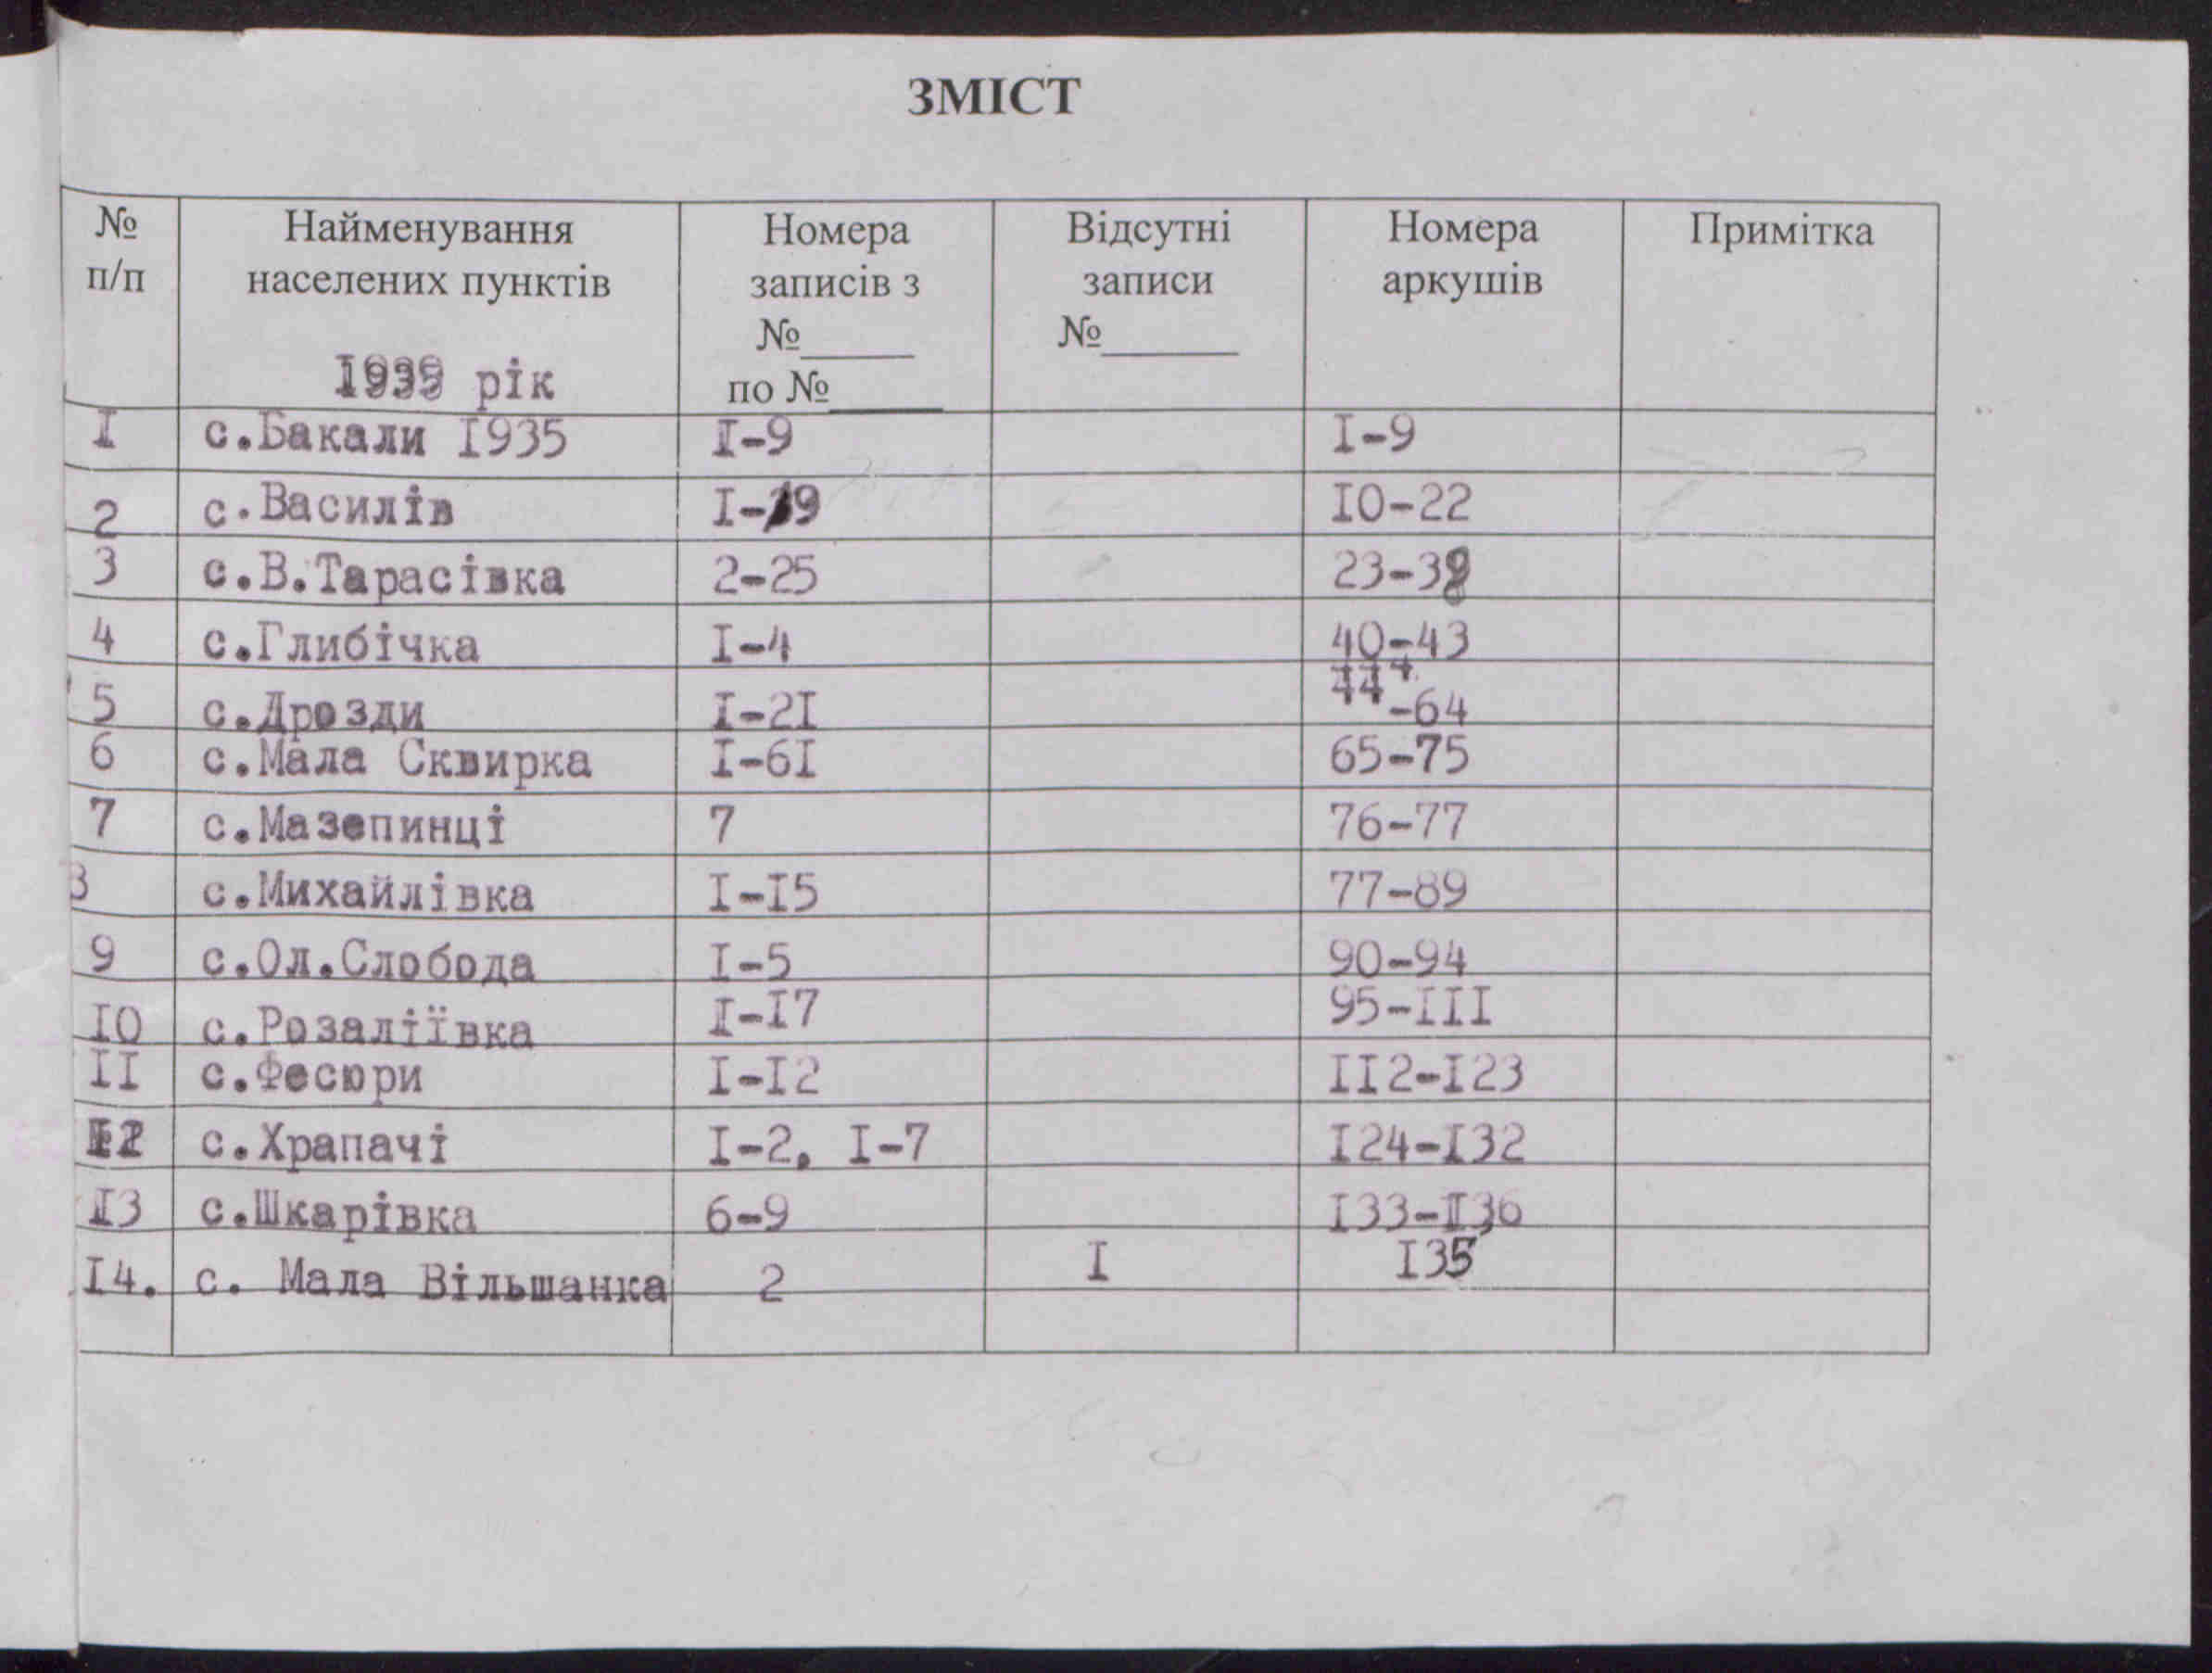 ЗМІСТ
№ п/п | Найменування населених пунктів рік | Номера записів з №_____ по №_____ | Відсутні записи №______ | Номера аркушів | Примітка
I | с.Бакали I935 | I-9 | | I-9 |
2 | с.Василів | I-19 | | IO-22 |
3 | с.В.Тарасівка | 2-25 | | |
4 | с.Глибічка | I-4 | | 40-43 |
5 | с.Дрозди | I-2I | | 44-64 |
6 | с.Мала Сквирка | I-6I | | 65-75 |
7 | с.Мазепинці | 7 | | 76-77 |
8 | с.Михайлівка | I-I5 | | 77-89 |
9 | с.Ол.Слобода | I-5 | | 90-94 |
IO | с.Розаліївка | I-I7 | | 95-III |
II | с.Фесюри | I-I2 | | II2-I23 |
I2 | с.Храпачі | I-2, I-7 | | I24-I32 |
I3 | с.Шкарівка | 6-9 | | I33-I36 |
I4. | с. Мала Вільшанка | 2 | I | I35 |